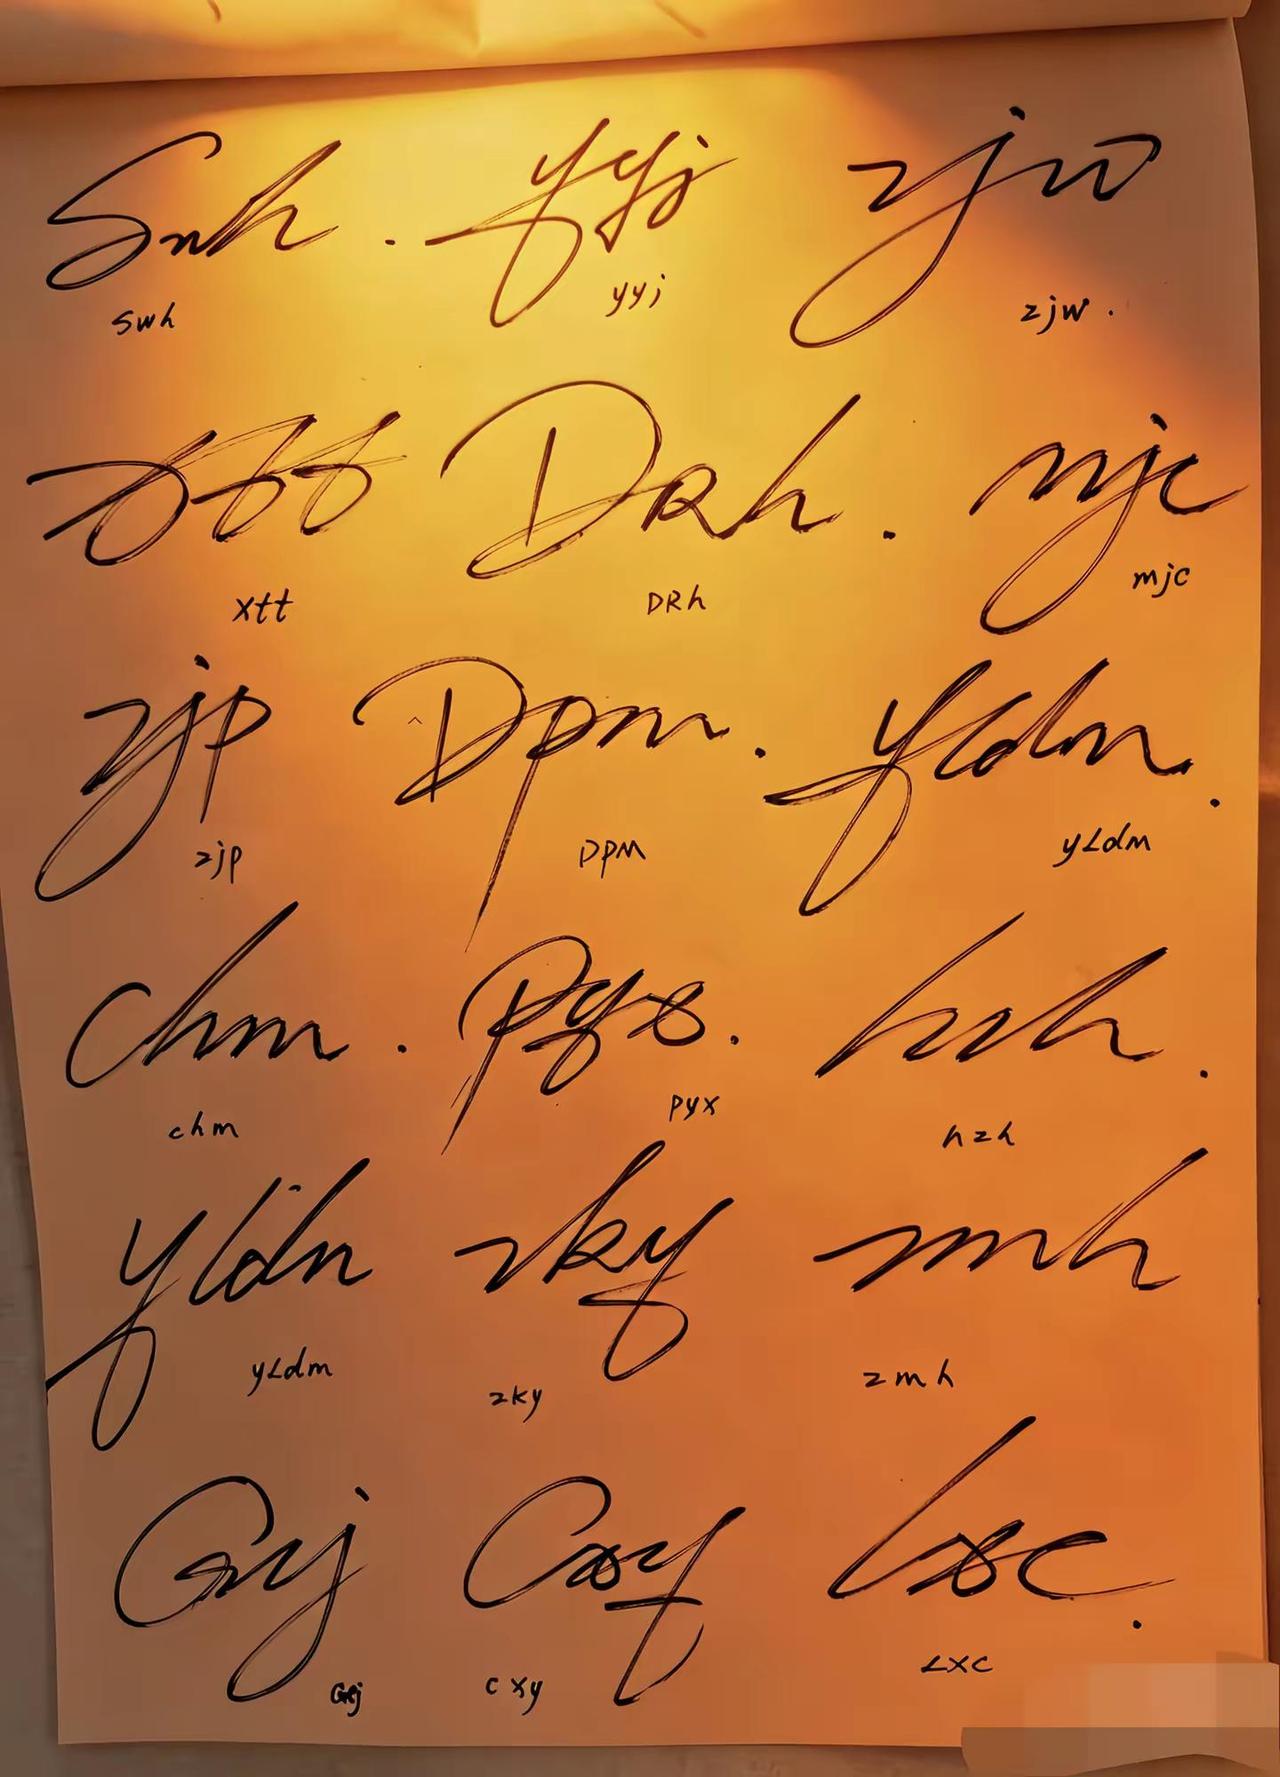 Swh . yyj zjw
swh yyj zjw .
xtt DRh . mjc
xtt DRh mjc
zjp Dpm . yLdm .
zjp DPM yLdm
chm . Pyx . hzh .
chm pyx hzh
yldm zky zmh
yLdm zky zmh
Cxy Lxc .
cxy LXC